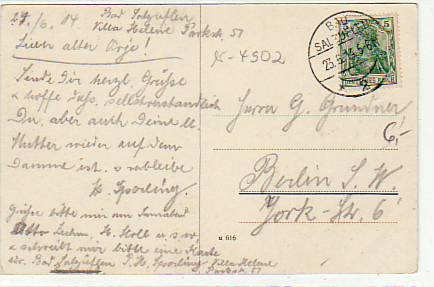 27./6. 14. Bad Salzuflen
Villa Helene Parkstr. 51
Lieber alter Orje!
Sende Dir herzl. Grüße
u. hoffe daß, selbstverständlich
Du, aber auch Deine ll.
Mutter wieder auf dem
Damme ist. verbleibe
H. Sporling.
Grüße bitte mir am
H. Moll u. s. w.
u. schreibt mir bitte eine Karte
Bad Salzuflen P. H. Sporling, Villa Helene
Parkstr. 51
X-4502
BAD
SALZUFLEN
5
2
Herrn G. Grundner,
6,-
Berlin S. W.
York-Str. 6
u 616